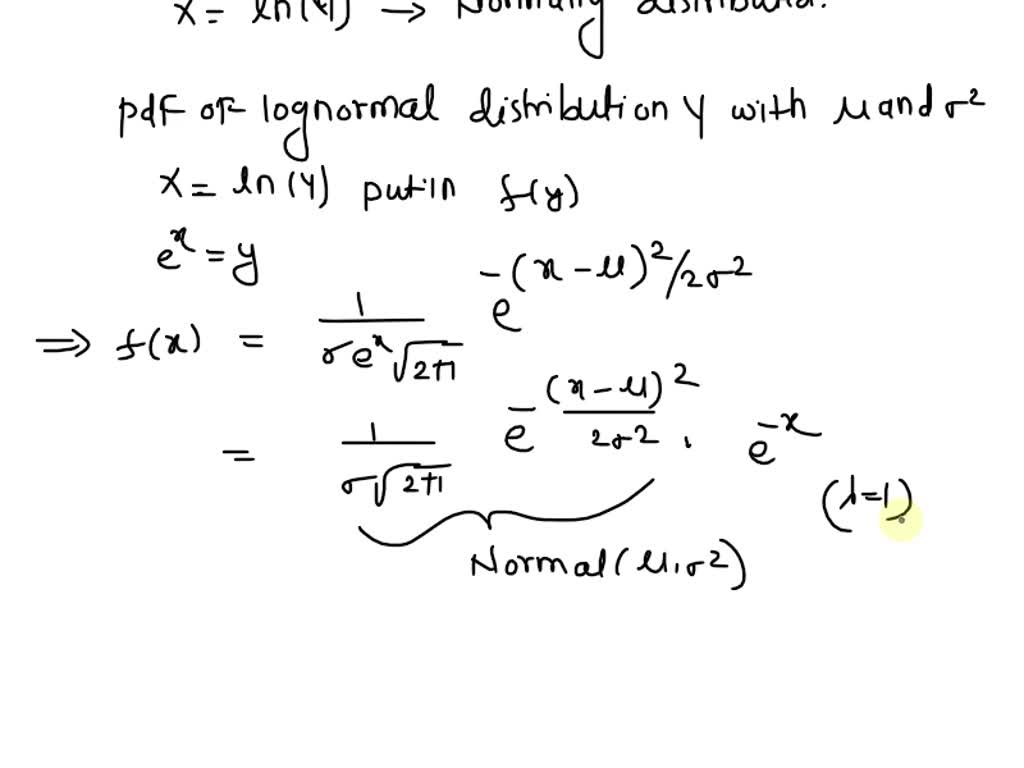 x = ln(y) → Normally distributed.
pdf of lognormal distribution Y with μ and σ²
x = ln(y) put in f(y)
eˣ = y
⇒ f(x) = 1/(σeˣ√2π) e^-(x-μ)²/2σ²
= 1/(σ√2π) e^-(x-μ)²/2σ² . e^-x
(λ=1)
Normal(μ,σ²)